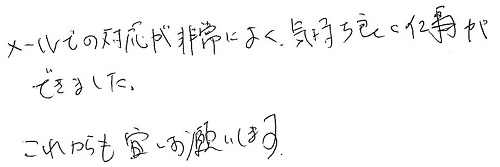 メールでの対応が非常によく、気持ち良く仕事が
できました。
これからも宜しくお願いします。